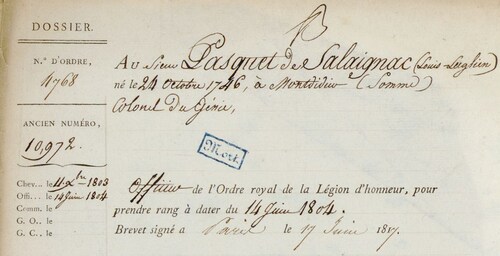 DOSSIER.
N.º D'ORDRE,
4768
ANCIEN NUMÉRO,
10,972.
Chev... le 4 Xbre 1803
Offi... le 14 Juin 1804
Comm. le
G. O... le
G. C., le
AU Sieur Pasquet de Salaignac (Louis-
né le 24 Octobre 1746, à Montdidier (Somme)
Colonel du Génie,
Mort.
Officier de l'Ordre royal de la Légion d'honneur, pour
prendre rang à dater du 14 Juin 1804.
Brevet signé à Paris le 17 Juin 1817.